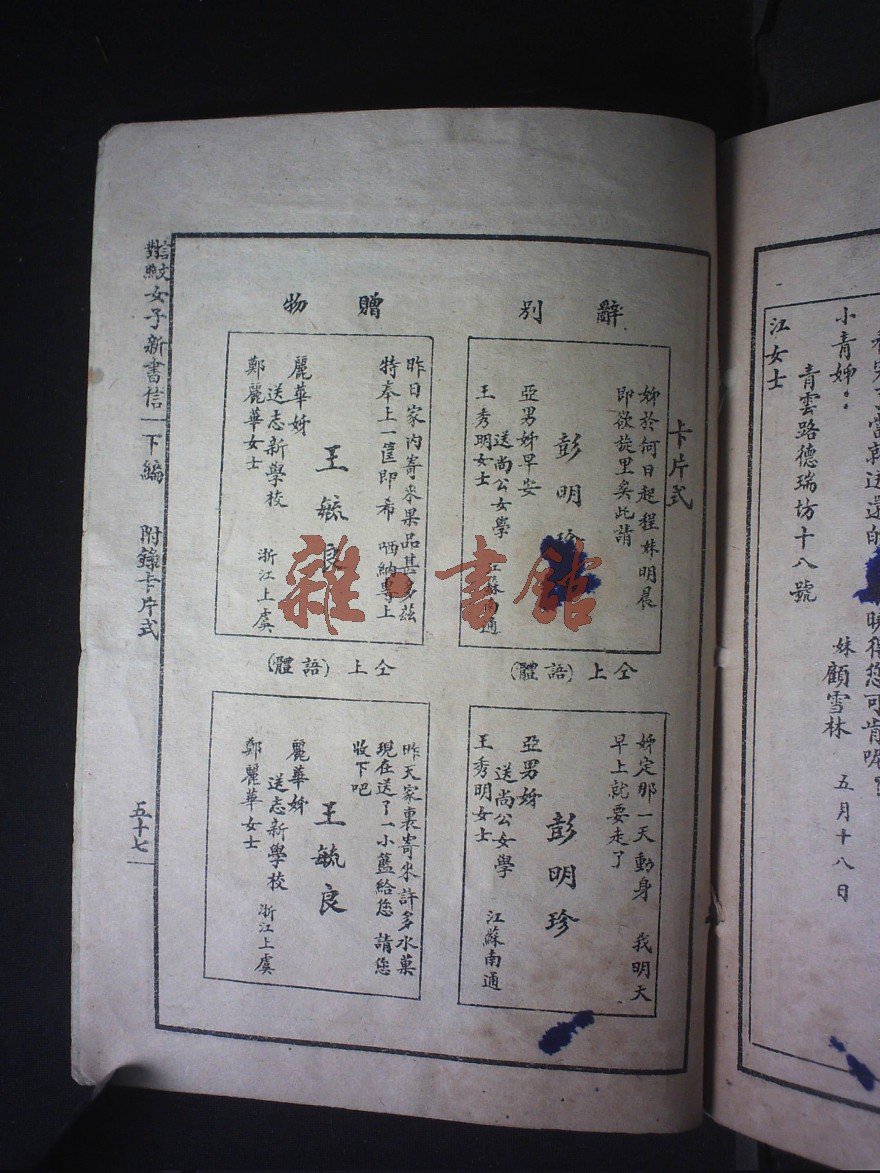 小青姊。。
青雲路德瑞坊十八號
江女士
妹顧雪林 五月十八日
卡片式
辭別
姊於何日起程妹明晨
即欲旋里矣此請
彭明珍
亞男姊早安
送尚公女學
王秀明女士
江蘇南通
仝上(語體)
姊定那一天動身 我明天
早上就要走了
彭明珍
亞男姊
送尚公女學
王秀明女士
江蘇南通
贈物
昨日家内寄來果品甚多茲
特奉上一筐即希 哂納專上
王毓良
麗華姊
送志新學校
鄭麗華女士
浙江上虞
仝上(語體)
昨天家裏寄來許多水菓
現在送了一小籃給您 請您
收下吧
王毓良
麗華姊
送志新學校
鄭麗華女士
浙江上虞
女子新書信 下編 附錄卡片式
五十七
雜·書館